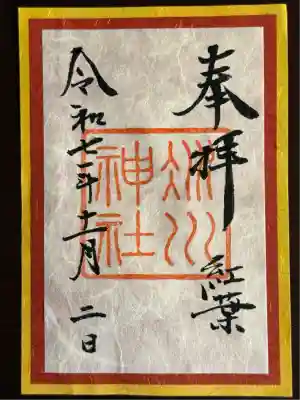 奉拝
紅葉
氷川
神社
令和七年十一月二日